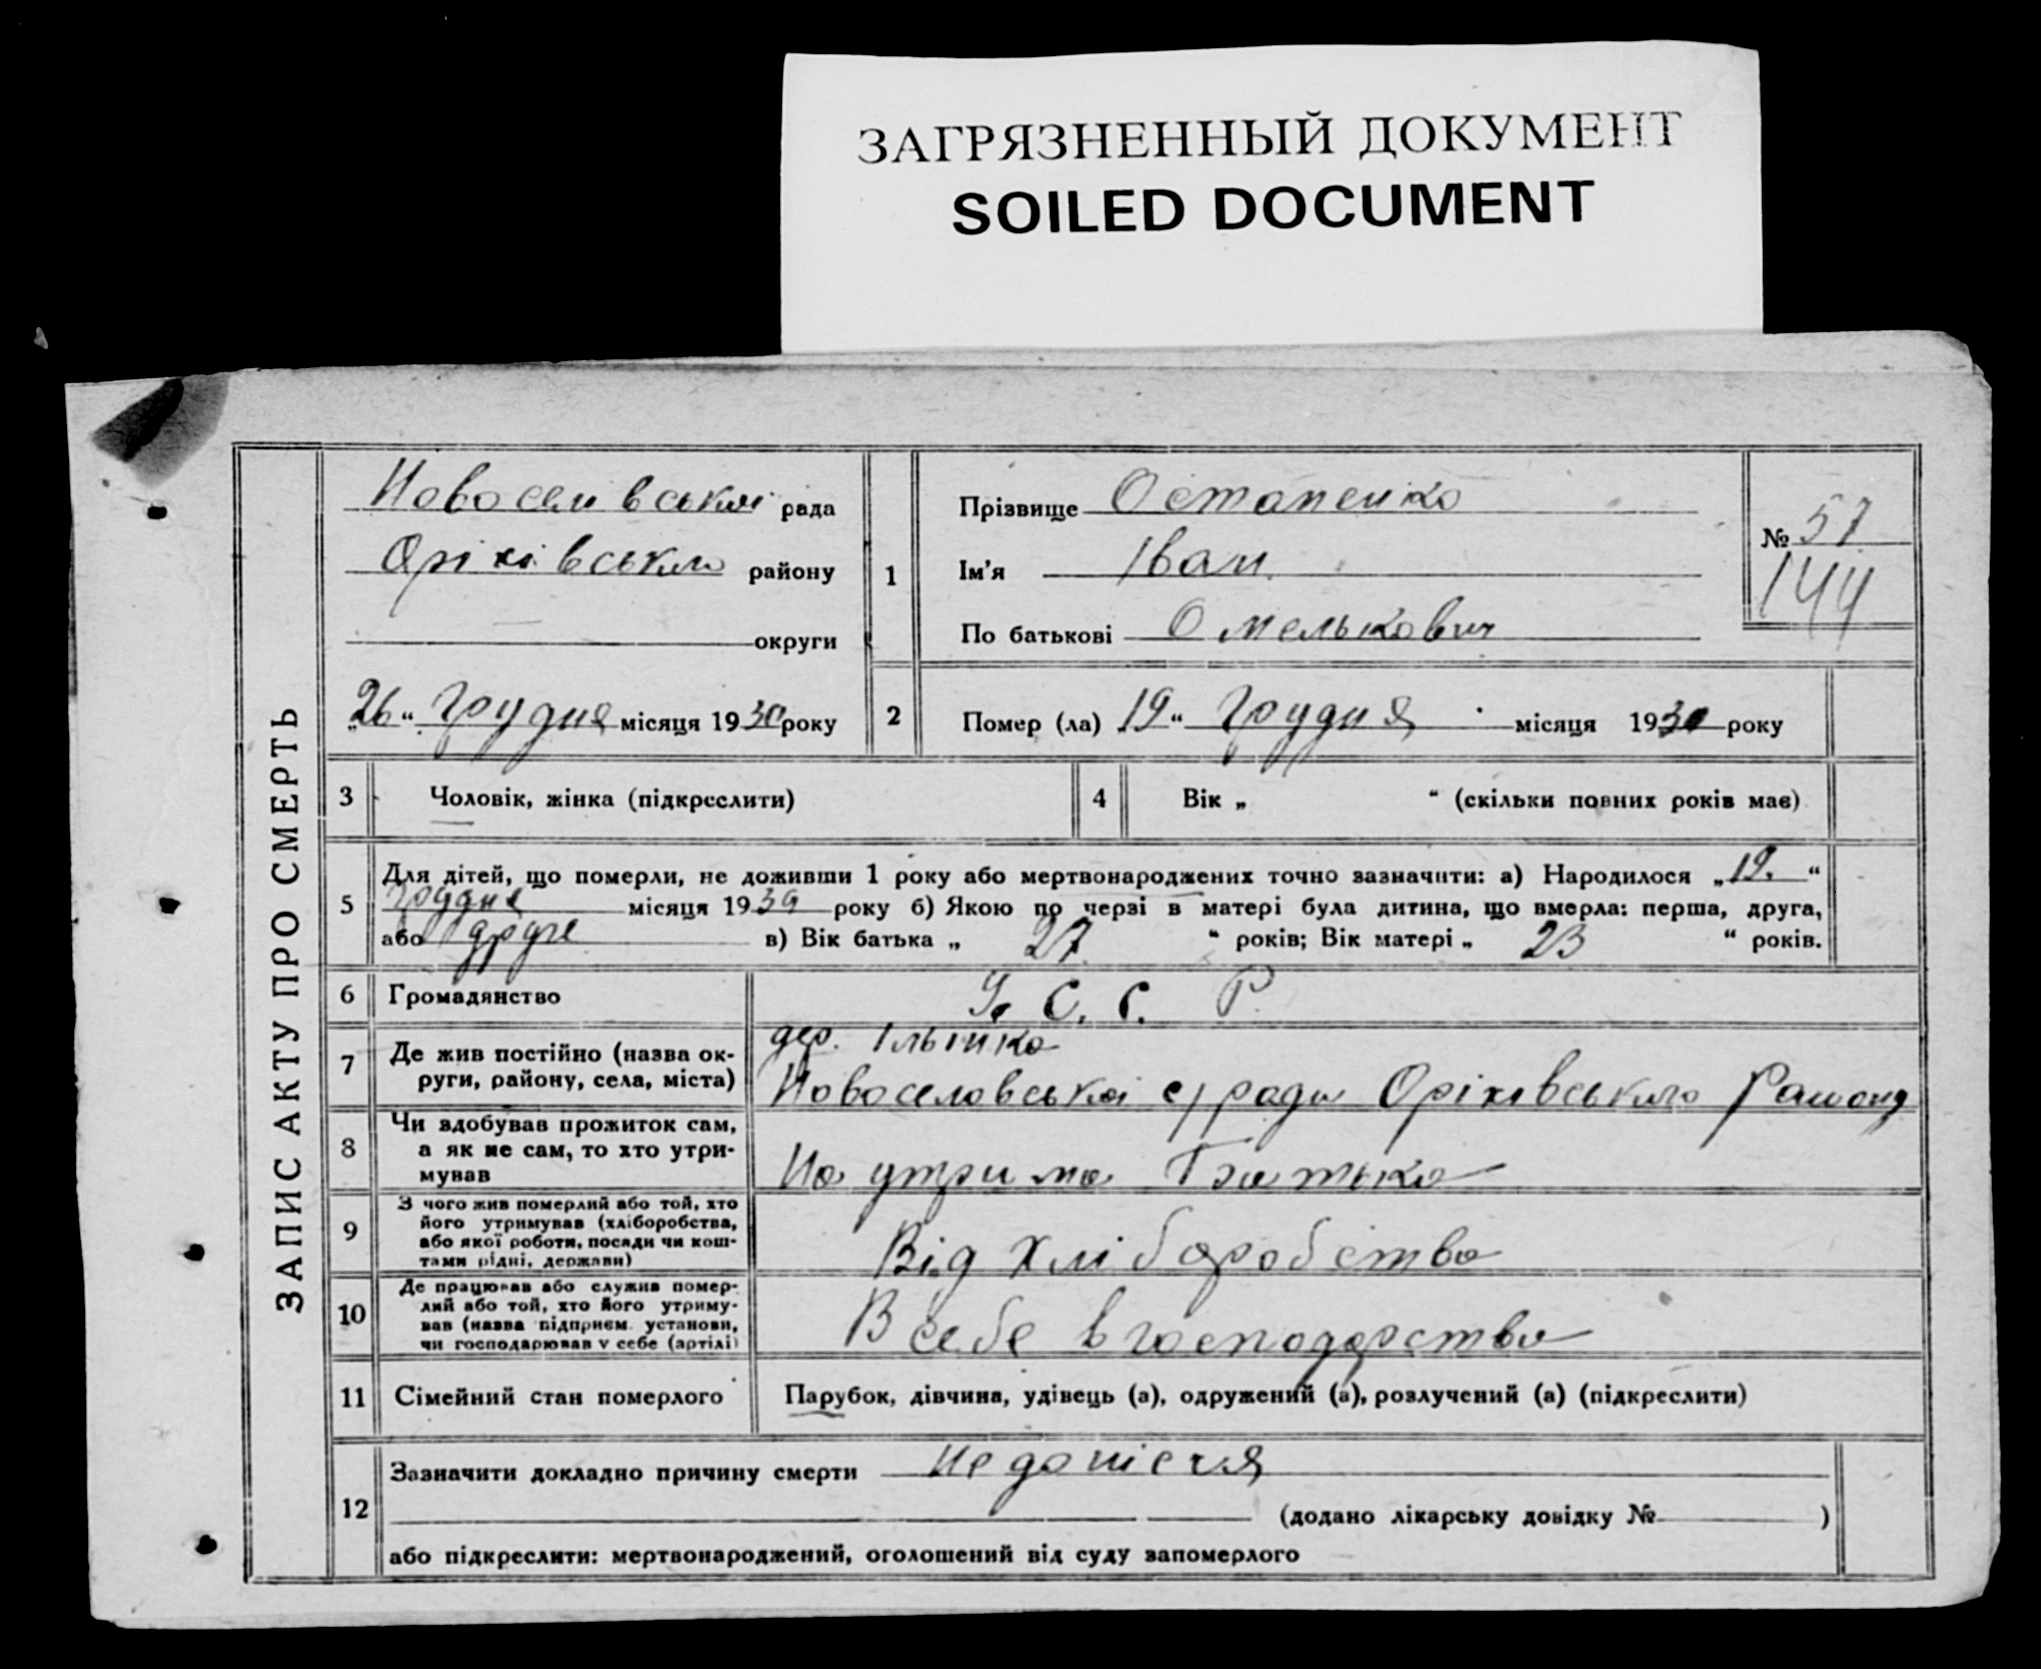 ЗАГРЯЗНЕННЫЙ ДОКУМЕНТ
SOILED DOCUMENT
ЗАПИС АКТУ ПРО СМЕРТЬ
Новоселівської рада
Оріхівського району
округи
„26“ Грудня місяця 1930 року
1
Прізвище Остапенко
Ім'я Іван
По батькові Омелькович
№ 57
144
2
Помер (ла) „19“ Грудня місяця 1930 року
3 Чоловік, жінка (підкреслити)
4 Вік „ “ (скільки повних років має)
5
Для дітей, що померли, не доживши 1 року або мертвонароджених точно зазначити: а) Народилося „19.“
Грудня місяця 1930 року б) Якою по черзі в матері була дитина, що вмерла: перша, друга,
або друге в) Вік батька „ 27 “ років; Вік матері „ 23 “ років.
6 Громадянство У. С. С. Р.
7 Де жив постійно (назва округи, району, села, міста)
дер.
Новоселовської с/ради Оріхівського Району
8 Чи здобував прожиток сам,
а як не сам, то хто утри-
мував
На утрима Батька
9 З чого жив померлий або той, хто
його утримував (хліборобства,
або якої роботи, посади чи кош-
тами рідні, держави)
Від хліборобства
10 Де працював або служив помер-
лий або той, хто його утриму-
вав (назва підприєм. установи,
чи господарював у себе (артілі)
В себе в господарства
11 Сімейний стан померлого
Парубок, дівчина, удівець (а), одружений (а), розлучений (а) (підкреслити)
12
Зазначити докладно причину смерти
(додано лікарську довідку № )
або підкреслити: мертвонароджений, оголошений від суду запомерлого